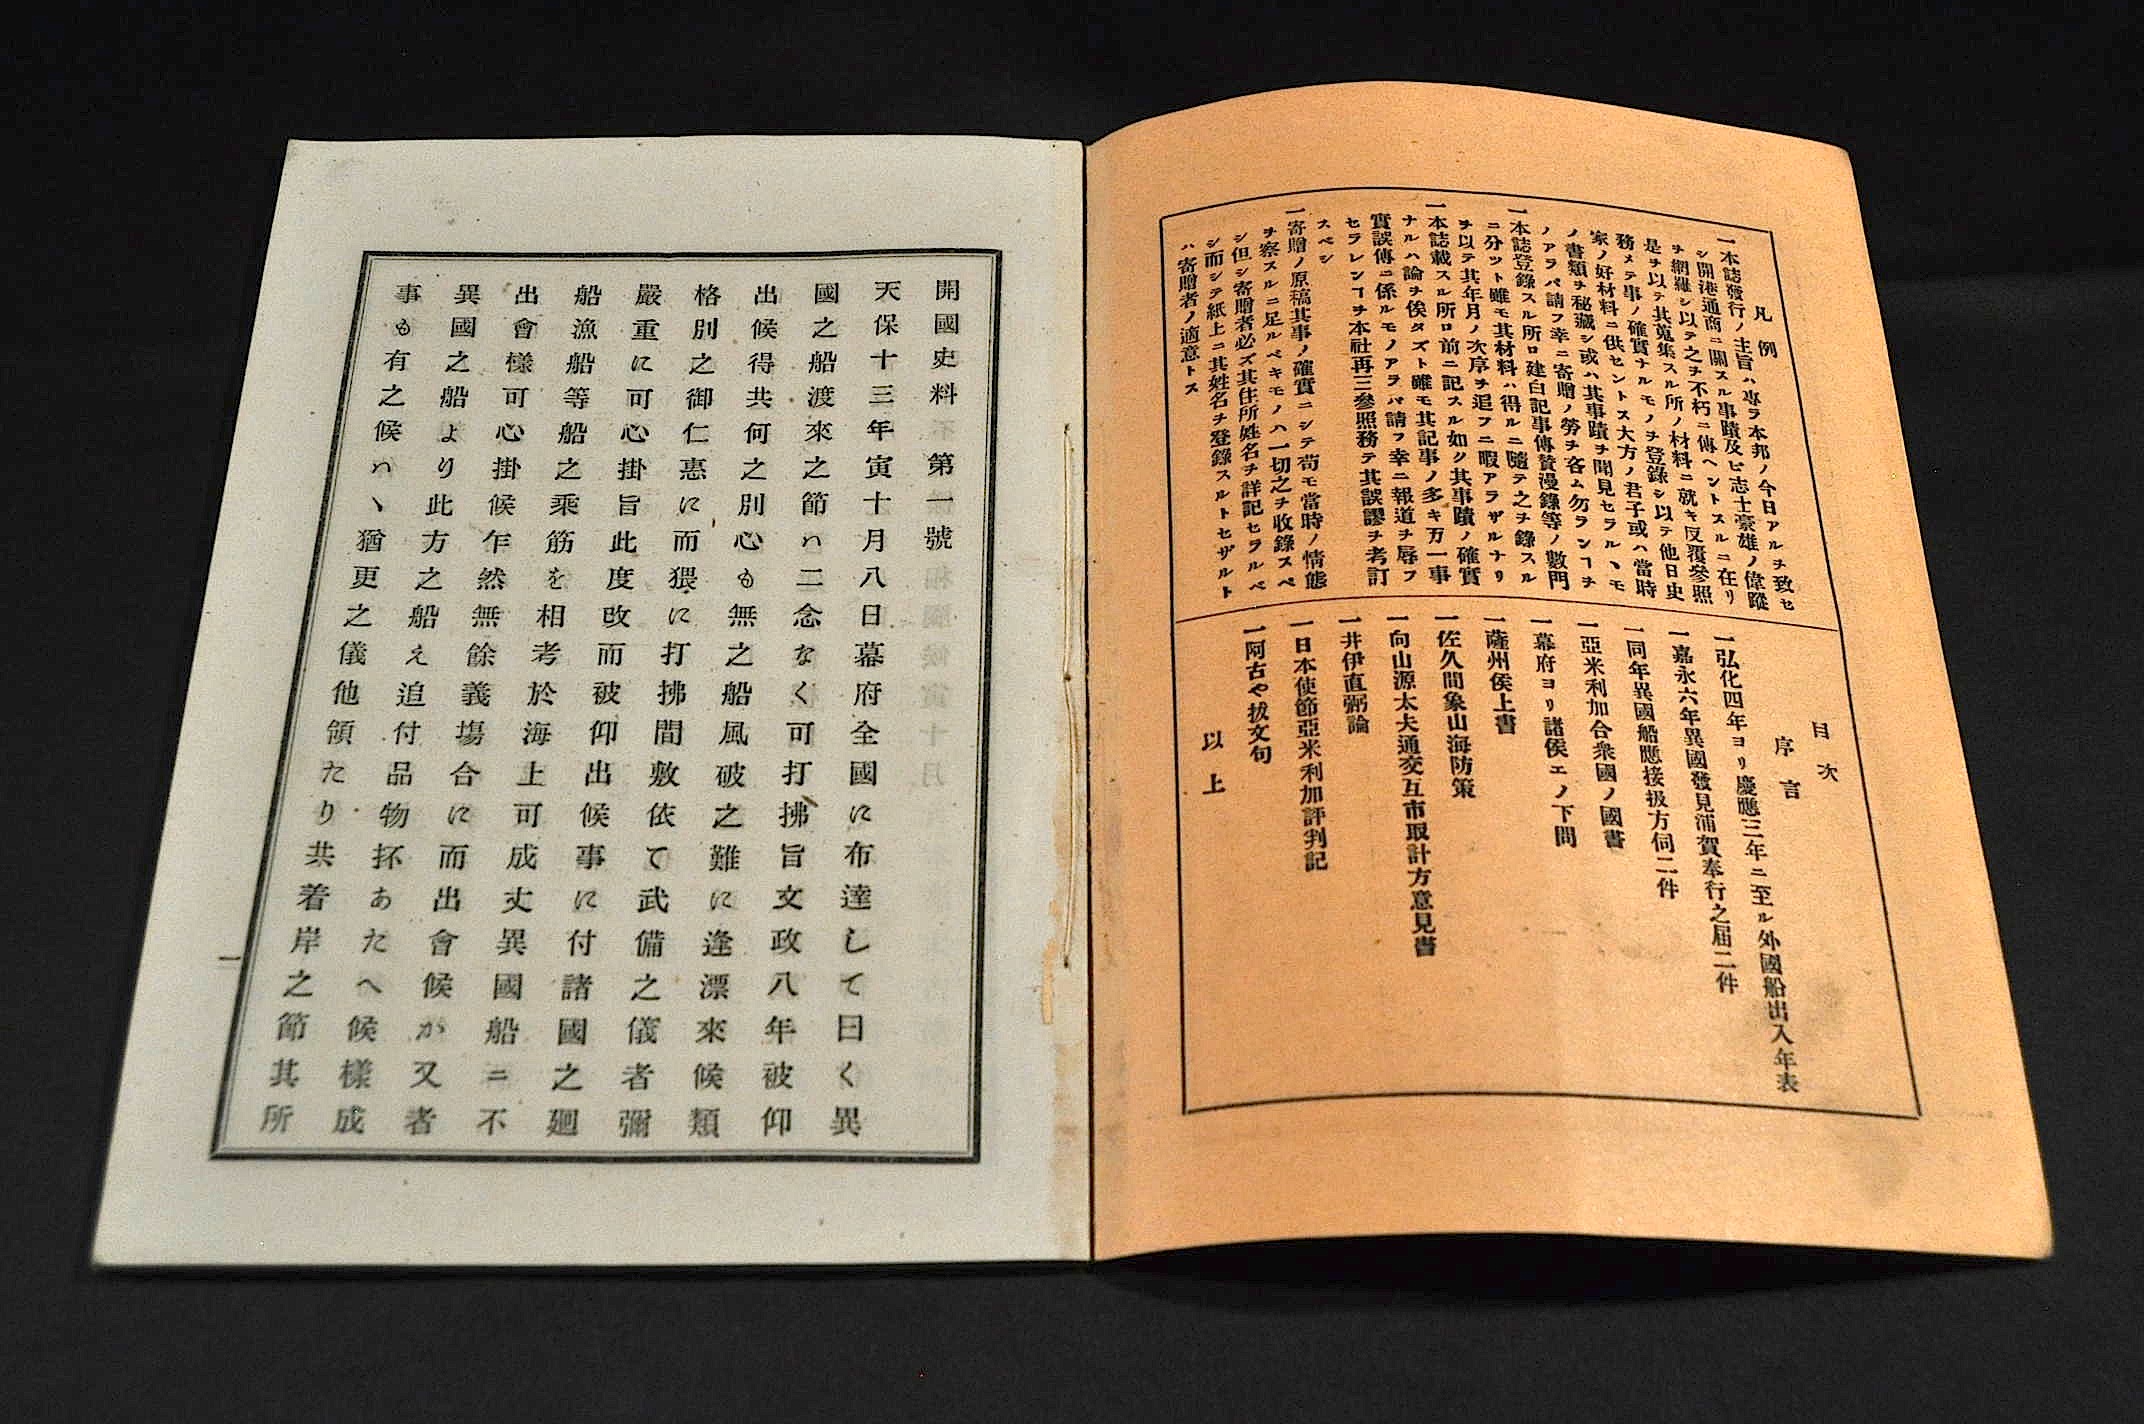 凡例
一本誌發行ノ主旨ハ專ラ本邦ノ今日アルヲ致セ
シ開港通商ニ關スル事蹟及ビ志士豪雄ノ偉蹤
ヲ網羅シ以テ之ヲ不朽ニ傳ヘントスルニ在リ
是ヲ以テ其蒐集スル所ノ材料ニ就キ反覆參照
務メテ事ノ確實ナルモノヲ登錄シ以テ他日史
家ノ好材料ニ供セントス大方ノ君子或ハ當時
ノ書類ヲ秘藏シ或ハ其事蹟ヲ聞見セラルヽモ
ノアラバ請フ幸ニ寄贈ノ勞ヲ吝ム勿ランヿヲ
一本誌登錄スル所ロ建白記事傳贊漫錄等ノ數門
ニ分ツト雖モ其材料ハ得ルニ隨テ之ヲ錄スル
ヲ以テ其年月ノ次序ヲ追フニ暇アラザルナリ
一本誌載スル所ロ前ニ記スル如ク其事蹟ノ確實
ナルハ論ヲ俟タズト雖モ其記事ノ多キ万一事
實誤傳ニ係ルモノアラバ請フ幸ニ報道ヲ辱フ
セラレンヿヲ本社再三參照務テ其誤謬ヲ考訂
スベシ
一寄贈ノ原稿其事ノ確實ニシテ苟モ當時ノ情態
ヲ察スルニ足ルベキモノハ一切之ヲ收錄スベ
シ但シ寄贈者必ズ其住所姓名ヲ詳記セラルベ
シ而シテ紙上ニ其姓名ヲ登錄スルトセザルト
ハ寄贈者ノ適意トス
目次
序言
一弘化四年ヨリ慶應三年ニ至ル外國船出入年表
一嘉永六年異國發見浦賀奉行之届二件
一同年異國船應接扱方伺二件
一亞米利加合衆國ノ國書
一幕府ヨリ諸侯エノ下問
一薩州侯上書
一佐久間象山海防策
一向山源太夫通交互市取計方意見書
一井伊直弼論
一日本使節亞米利加評判記
一阿古や拔文句
以上
開國史料第一號
天保十三年寅十月八日幕府全國に布達して曰く異
國之船渡來之節ハ二念なく可打拂旨文政八年被仰
出候得共何之別心も無之船風破之難に逢漂來候類
格別之御仁惠に而猥に打拂間敷依て武備之儀者彌
嚴重に可心掛旨此度改而被仰出候事に付諸國之廻
船漁船等船之乘筋を相考於海上可成丈異國船ニ不
出會樣可心掛候乍然無餘義塲合に而出會候か又者
異國之船より此方之船え追付品物抔あたへ候樣成
事も有之候ハヽ猶更之儀他領たり共着岸之節其所
一